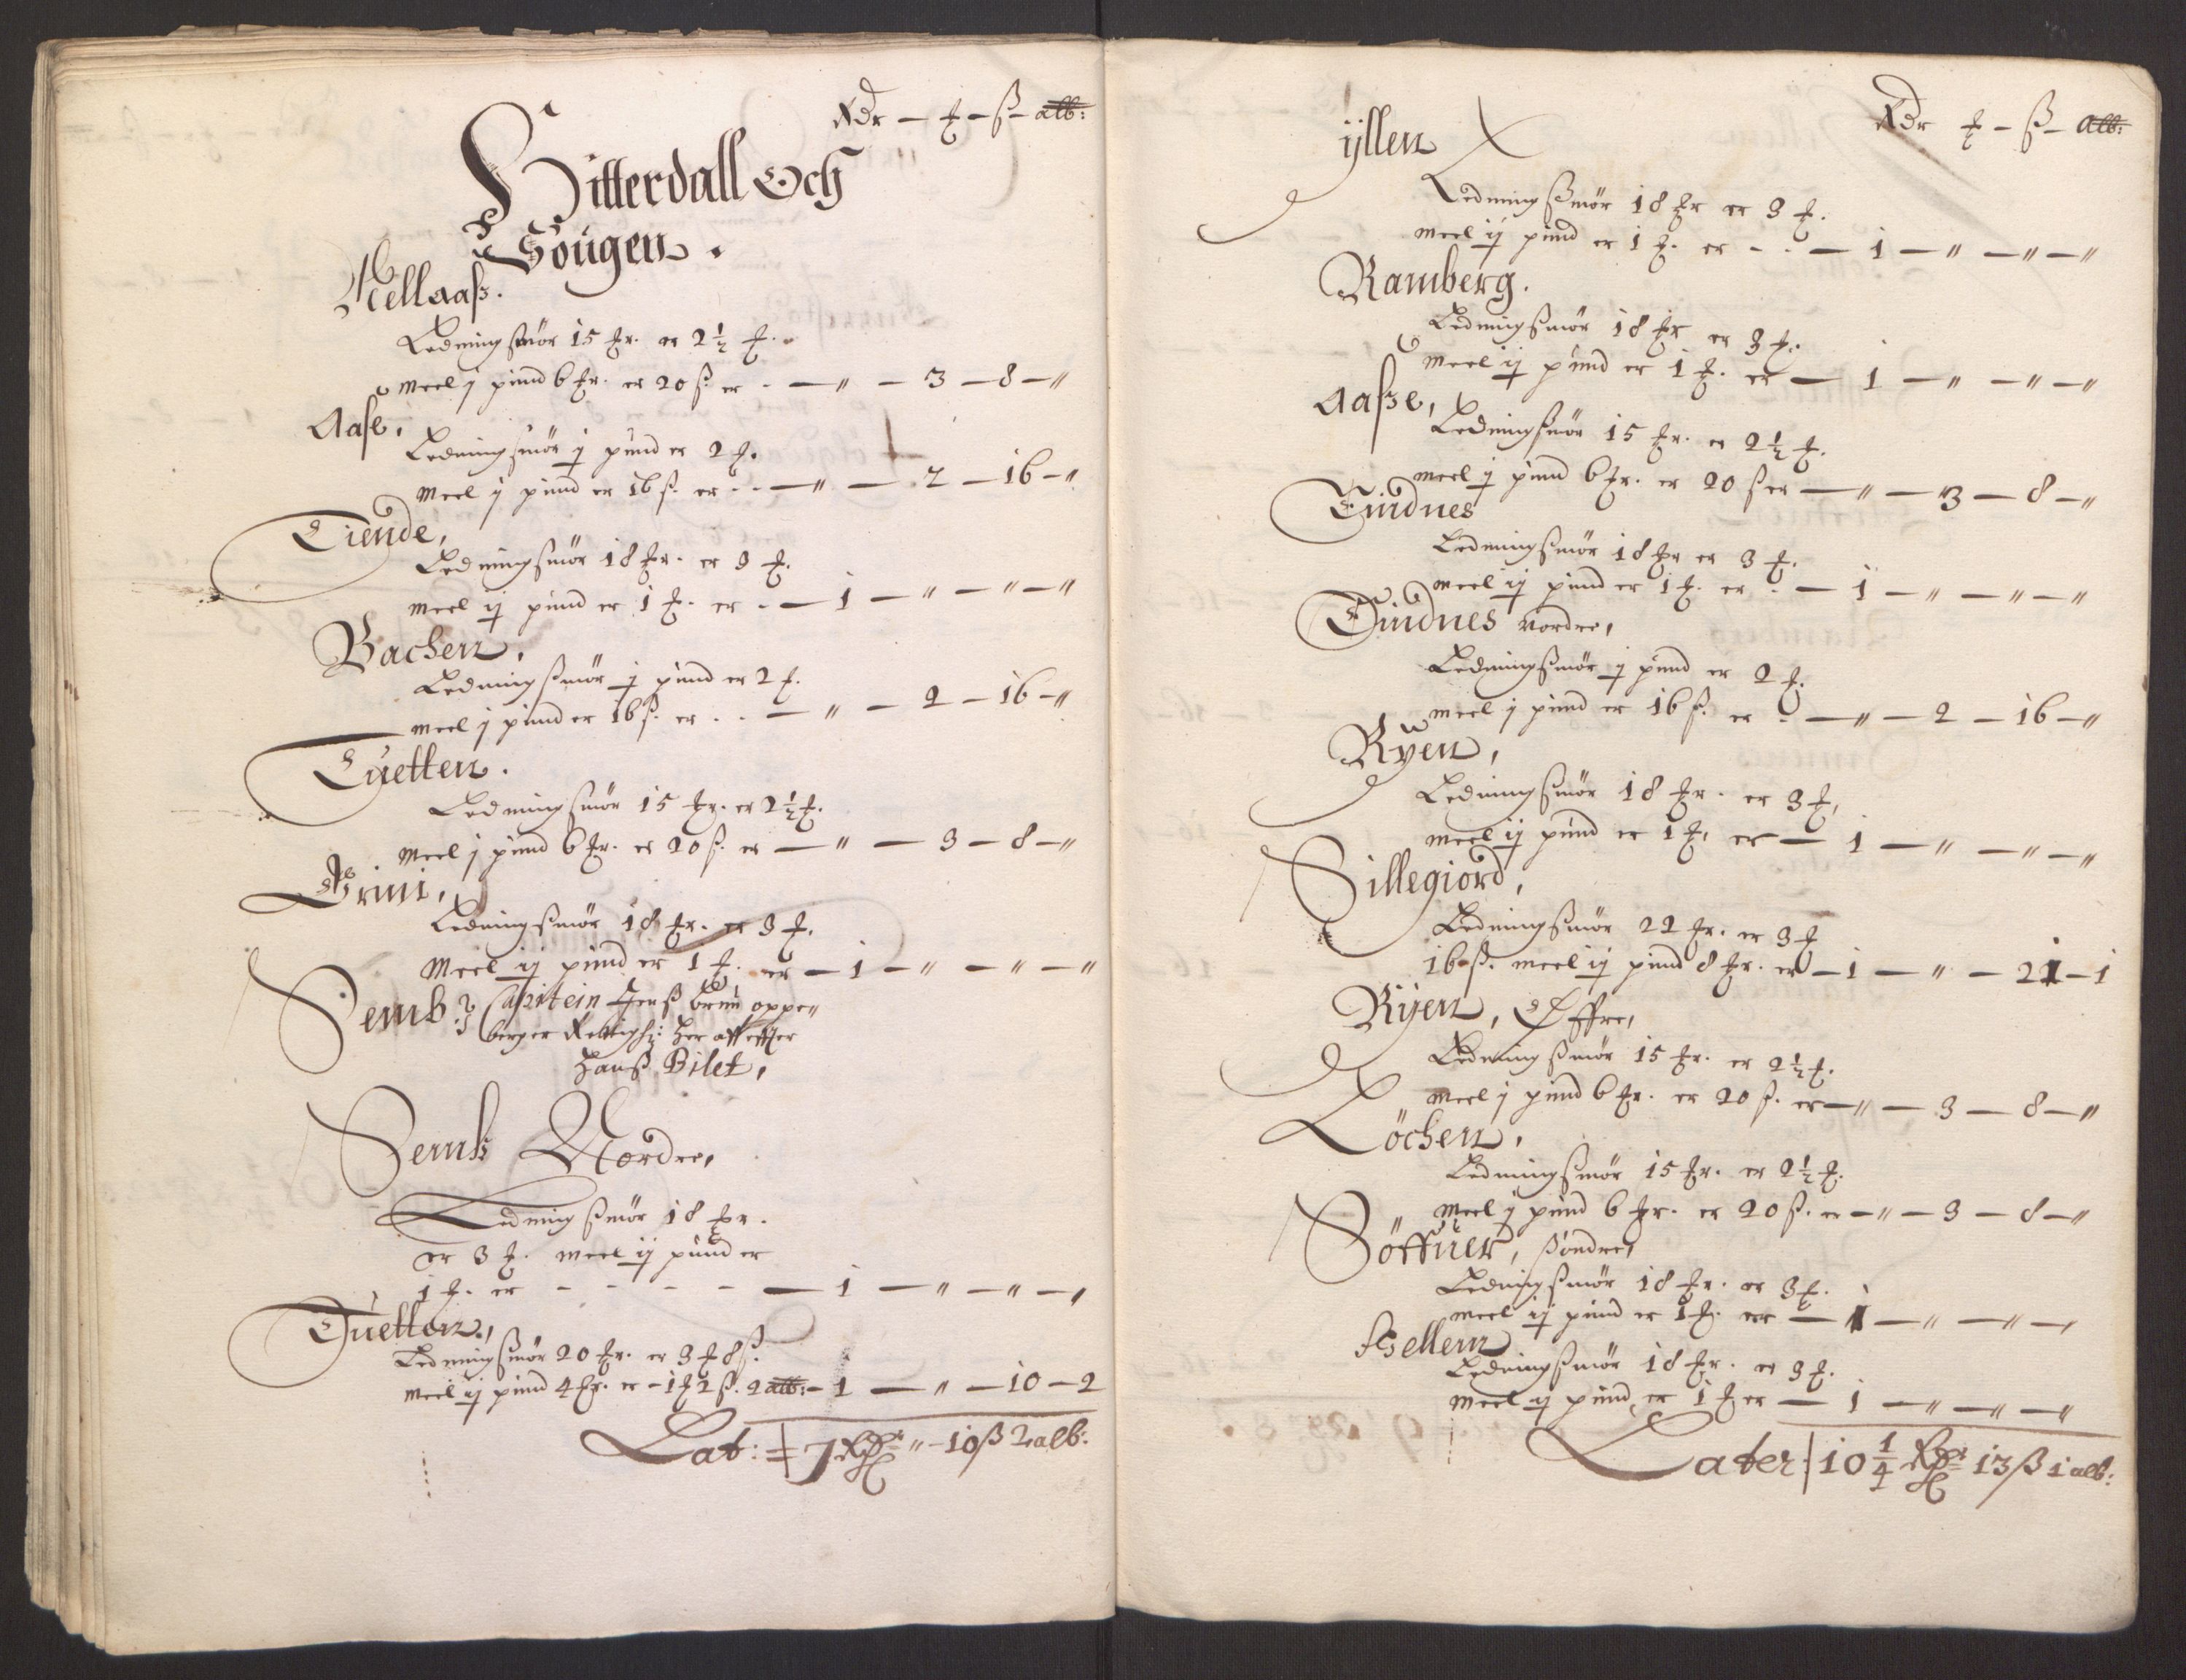 Rdr — ℔ — ß — alb:
Hitterdall Och
Sougen.
Mellaaß.
Ledningsmør 15 ℔r. er 2½ ℔.
meel j pund 6 ℔r. er 20 ß. er — " — 3 — 8 — "
Aase,
Ledningsmør j pund er 2 ℔.
meel j pund er 16 ß. er — " — 2 — 16 — "
Tiende,
Ledningsmør 18 ℔r. er 3 ℔.
meel ij pund er 1 ℔. er — 1 — " — " — "
Bachen,
Ledningßmør j pund er 2 ℔.
meel j pund er 16 ß. er — " — 2 — 16 — "
Tuetten.
Ledningsmør 15 ℔r. er 2½ ℔.
meel j pund 6 ℔r. er 20 ß. er — " — 3 — 8 — "
Grini,
Ledningßmør 18 ℔r. er 3 ℔.
Meel ij pund er 1 ℔. er — 1 — " — " — "
Semb: Capitein Jenß bruu oppe=
berger her effter
Hanß Bilet,
Semb Nordre,
Ledningßmør 18 ℔r.
er 3 ℔. meel ij pund er
1 ℔. er - - - - — 1 — " — " — "
Tuetten,
Ledningßmør 20 ℔r. er 3 ℔ 8 ß.
meel ij pund 4 ℔r. er - 1 ℔ 2 ß. 2 alb: — 1 — " — 10 — 2
Lat: 7 Rdr " - 10 ß 2 alb:
Rdr ℔ — ß — alb:
ÿllen
Ledningßmør 18 ℔r er 3 ℔.
meel ij pund er 1 ℔. er - - — 1 — " — " — "
Ramberg.
Ledningßmør 18 ℔r er 3 ℔.
meel ij pund er 1 ℔. er — 1 — " — " — "
Aaße,
Ledningßmør 15 ℔r. er 2½ ℔.
meel j pund 6 ℔r. er 20 ß er — " — 3 — 8 — "
Tindnes
Ledningßmør 18 ℔r er 3 ℔.
meel ij pund er 1 ℔. er - — 1 — " — " — "
Tindnes nordre,
Ledningßmør j pund er 2 ℔.
meel j pund er 16 ß. er - — " — 2 — 16 — "
Ryen,
Ledningßmør 18 ℔r. er 3 ℔,
meel ij pund er 1 ℔, er — 1 — " — " — "
Sillegiord,
Ledningßmør 22 ℔r. er 3 ℔
16 ß. meel ij pund 8 ℔r. er — 1 — " — 21 — 1
Rÿen, Øffre,
Ledningßmør 15 ℔r. er 2½ ℔.
meel j pund 6 ℔r. er 20 ß. er — " — 3 — 8 — "
Løchen,
Ledningßmør 15 ℔r. er 2½ ℔.
meel j pund 6 ℔r. er 20 ß. er — " — 3 — 8 — "
Söffuer, Söndre,
Ledningßmør 18 ℔r. er 3 ℔.
meel ij pund er 1 ℔. er — 1 — " — " — "
Hellem
Ledningßmør 18 ℔r. er 3 ℔.
meel ij pund er 1 ℔ er — 1 — " — " — "
Later 10¼ Rdr 13 ß 1 alb: